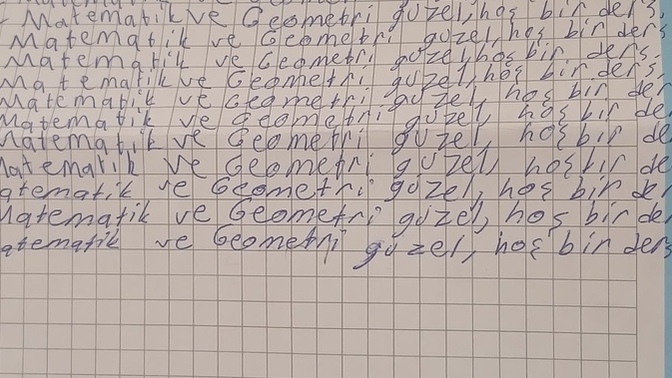 Matematik ve Geometri güzel, hoş bir ders.
Matematik ve Geometri güzel, hoş bir ders
Matematik ve Geometri güzel, hoş bir ders.
Matematik ve Geometri güzel, hoş bir ders.
Matematik ve Geometri güzel, hoş bir der
Matematik ve Geometri güzel, hoş bir der
Matematik ve Geometri güzel, hoş bir de
Matematik ve Geometri güzel, hoş bir de
atematik ve Geometri güzel, hoş bir de
Matematik ve Geometri güzel, hoş bir de
atematik ve Geometri güzel, hoş bir ders